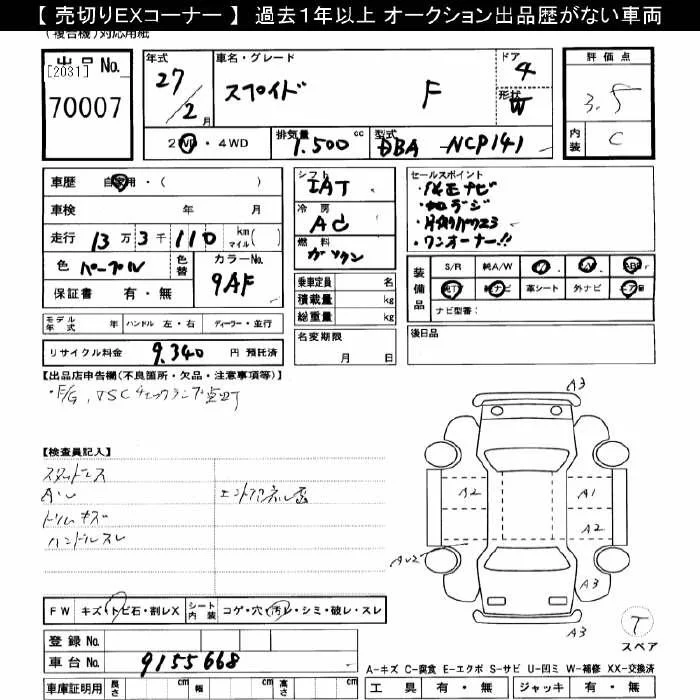 【 売切りEXコーナー 】 過去１年以上 オークション出品歴がない車両
(複合機)対応用紙
出品No. [2031] 70007
年式 27/2月
車名・グレード スペイド F
ドア 4
形状 W
評価点 3.5
内装 C
2WD・4WD
排気量 1.500 cc
型式 DBA-NCP141
車歴 自家用・( )
車検 年 月
走行 13万3千110 km マイル( )
色 パープル 色替 カラーNo. 9AF
保証書 有・無
シフト IAT
冷房 AC
燃料 ガソリン
乗車定員 名
積載量 kg
総重量 kg
セールスポイント
・純正ナビ
・地デジ
・片側パワスラ
・ワンオーナー!!
装備品 S/R 純A/W
革シート 外ナビ
純TV 純ナビ
ナビ型番:
モデル年式 年 ハンドル 左・右 ディーラー・並行
名変期限 月 日
後日品
リサイクル料金 9.340 円 預託済
【出品店申告欄(不良箇所・欠品・注意事項等)】
・F/G、VSCチェックランプ点灯
【検査員記入】
スタッドレス
ハンドルスレ
A3
A2 A1
A2
A3
A3
FW キズ・トビ石・割レX シート内装 コゲ・穴・汚レ・シミ・破レ・スレ
T
スペア
登録No.
車台No. 9155668
車庫証明用 長さ cm 幅 cm 高さ cm
A-キズ C-腐食 E-エクボ S-サビ U-凹ミ W-補修 XX-交換済
工具 有・無 ジャッキ 有・無